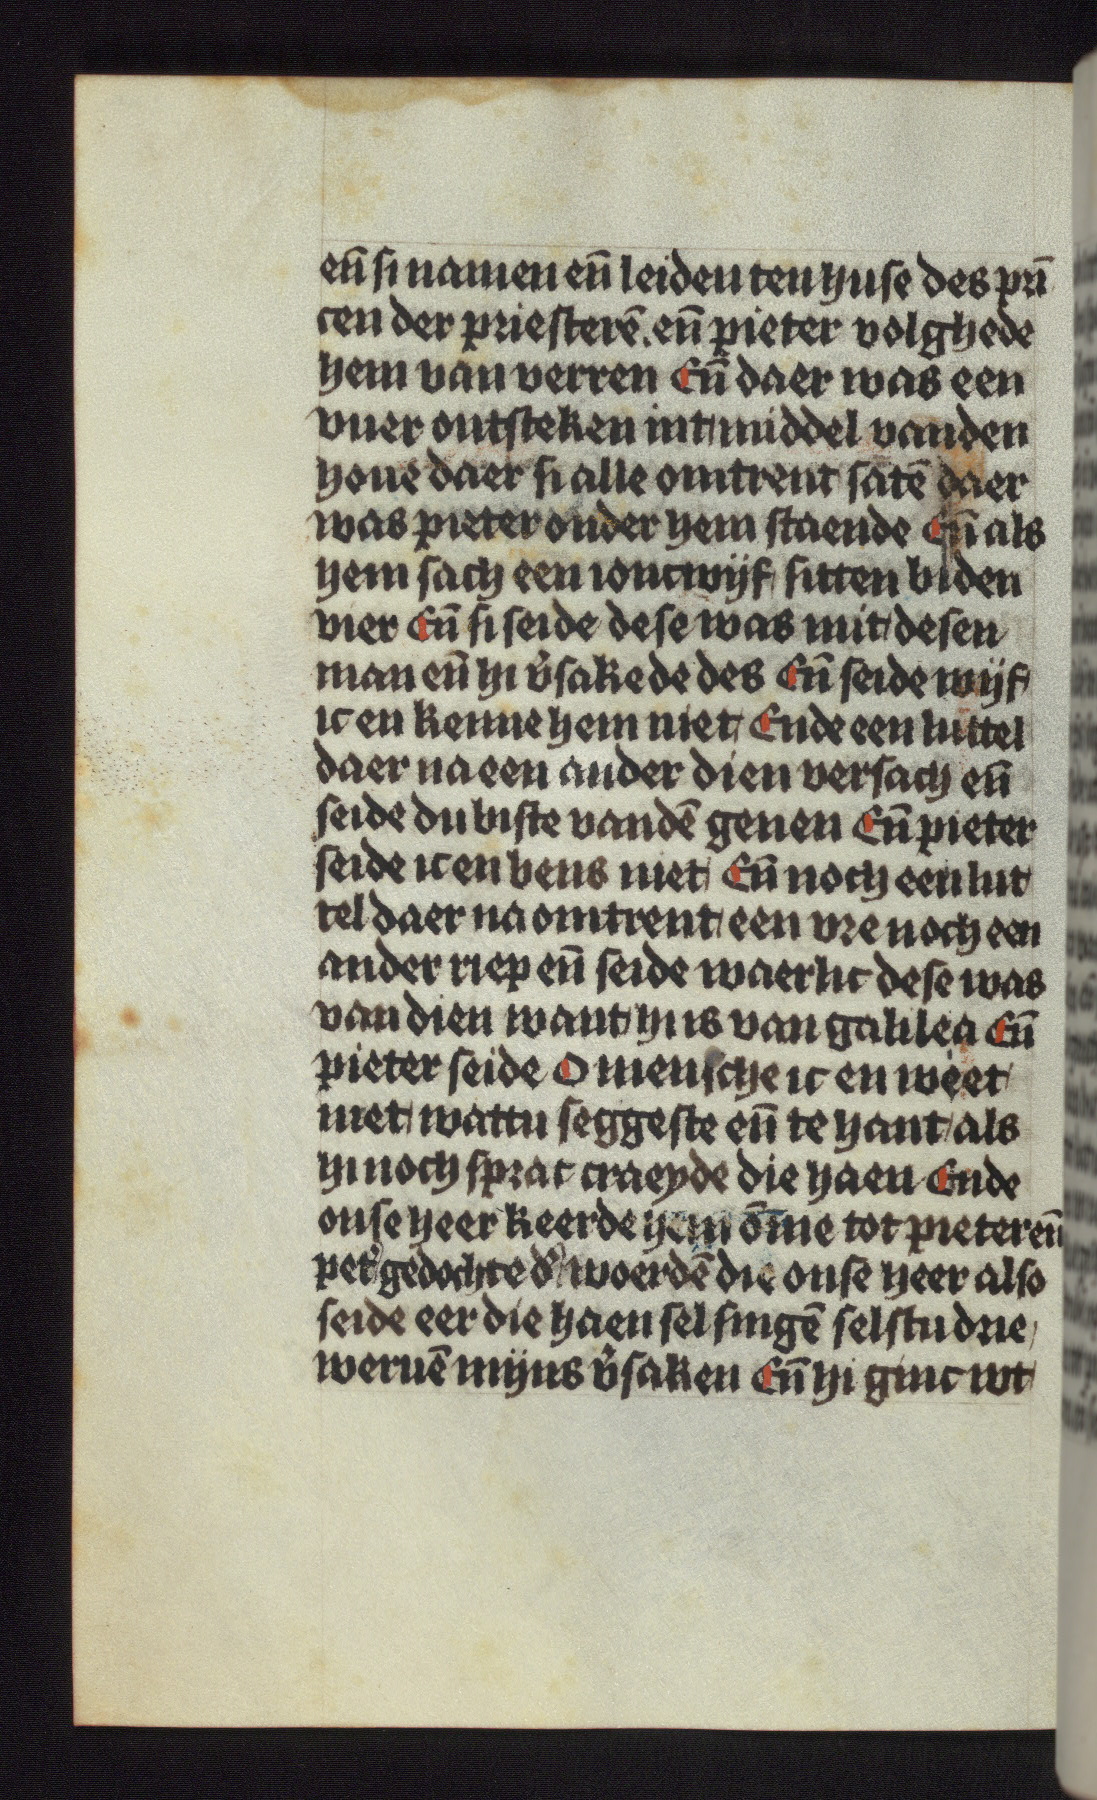 en̄ si namen en̄ leiden ten huse des prī
cen der priesterē. en̄ pieter volghede
hem van verren En̄ daer was een
vuer ontsteken int middel vanden
houe daer si alle omtrent sātē daer
was pieter onder hem staende En̄ als
hem sach een ioncwijf sitten biden
vier En̄ si seide dese was mit desen
man en̄ hi v̉sakede des En̄ seide wijf
ic en kenne hem niet Ende een luttel
daer na een ander dien versach en̄
seide du biste vandē genen En̄ pieter
seide ic en bens niet En̄ noch een lut
tel daer na omtrent een vre noch een
ander riep en̄ seide waerlic dese was
van dien want hi is van galilea En̄
pieter seide O mensche ic en weet
niet wattu seggeste en̄ te hant als
hi noch sprac craeyde die haen Ende
onse heer keerde hem ōme tot pieter en̄
pet̉ gedochte d̉ woerdē die onse heer also
seide eer die haen sel singē selstu drie
weruē mijns v̉saken En̄ hi ginc wt